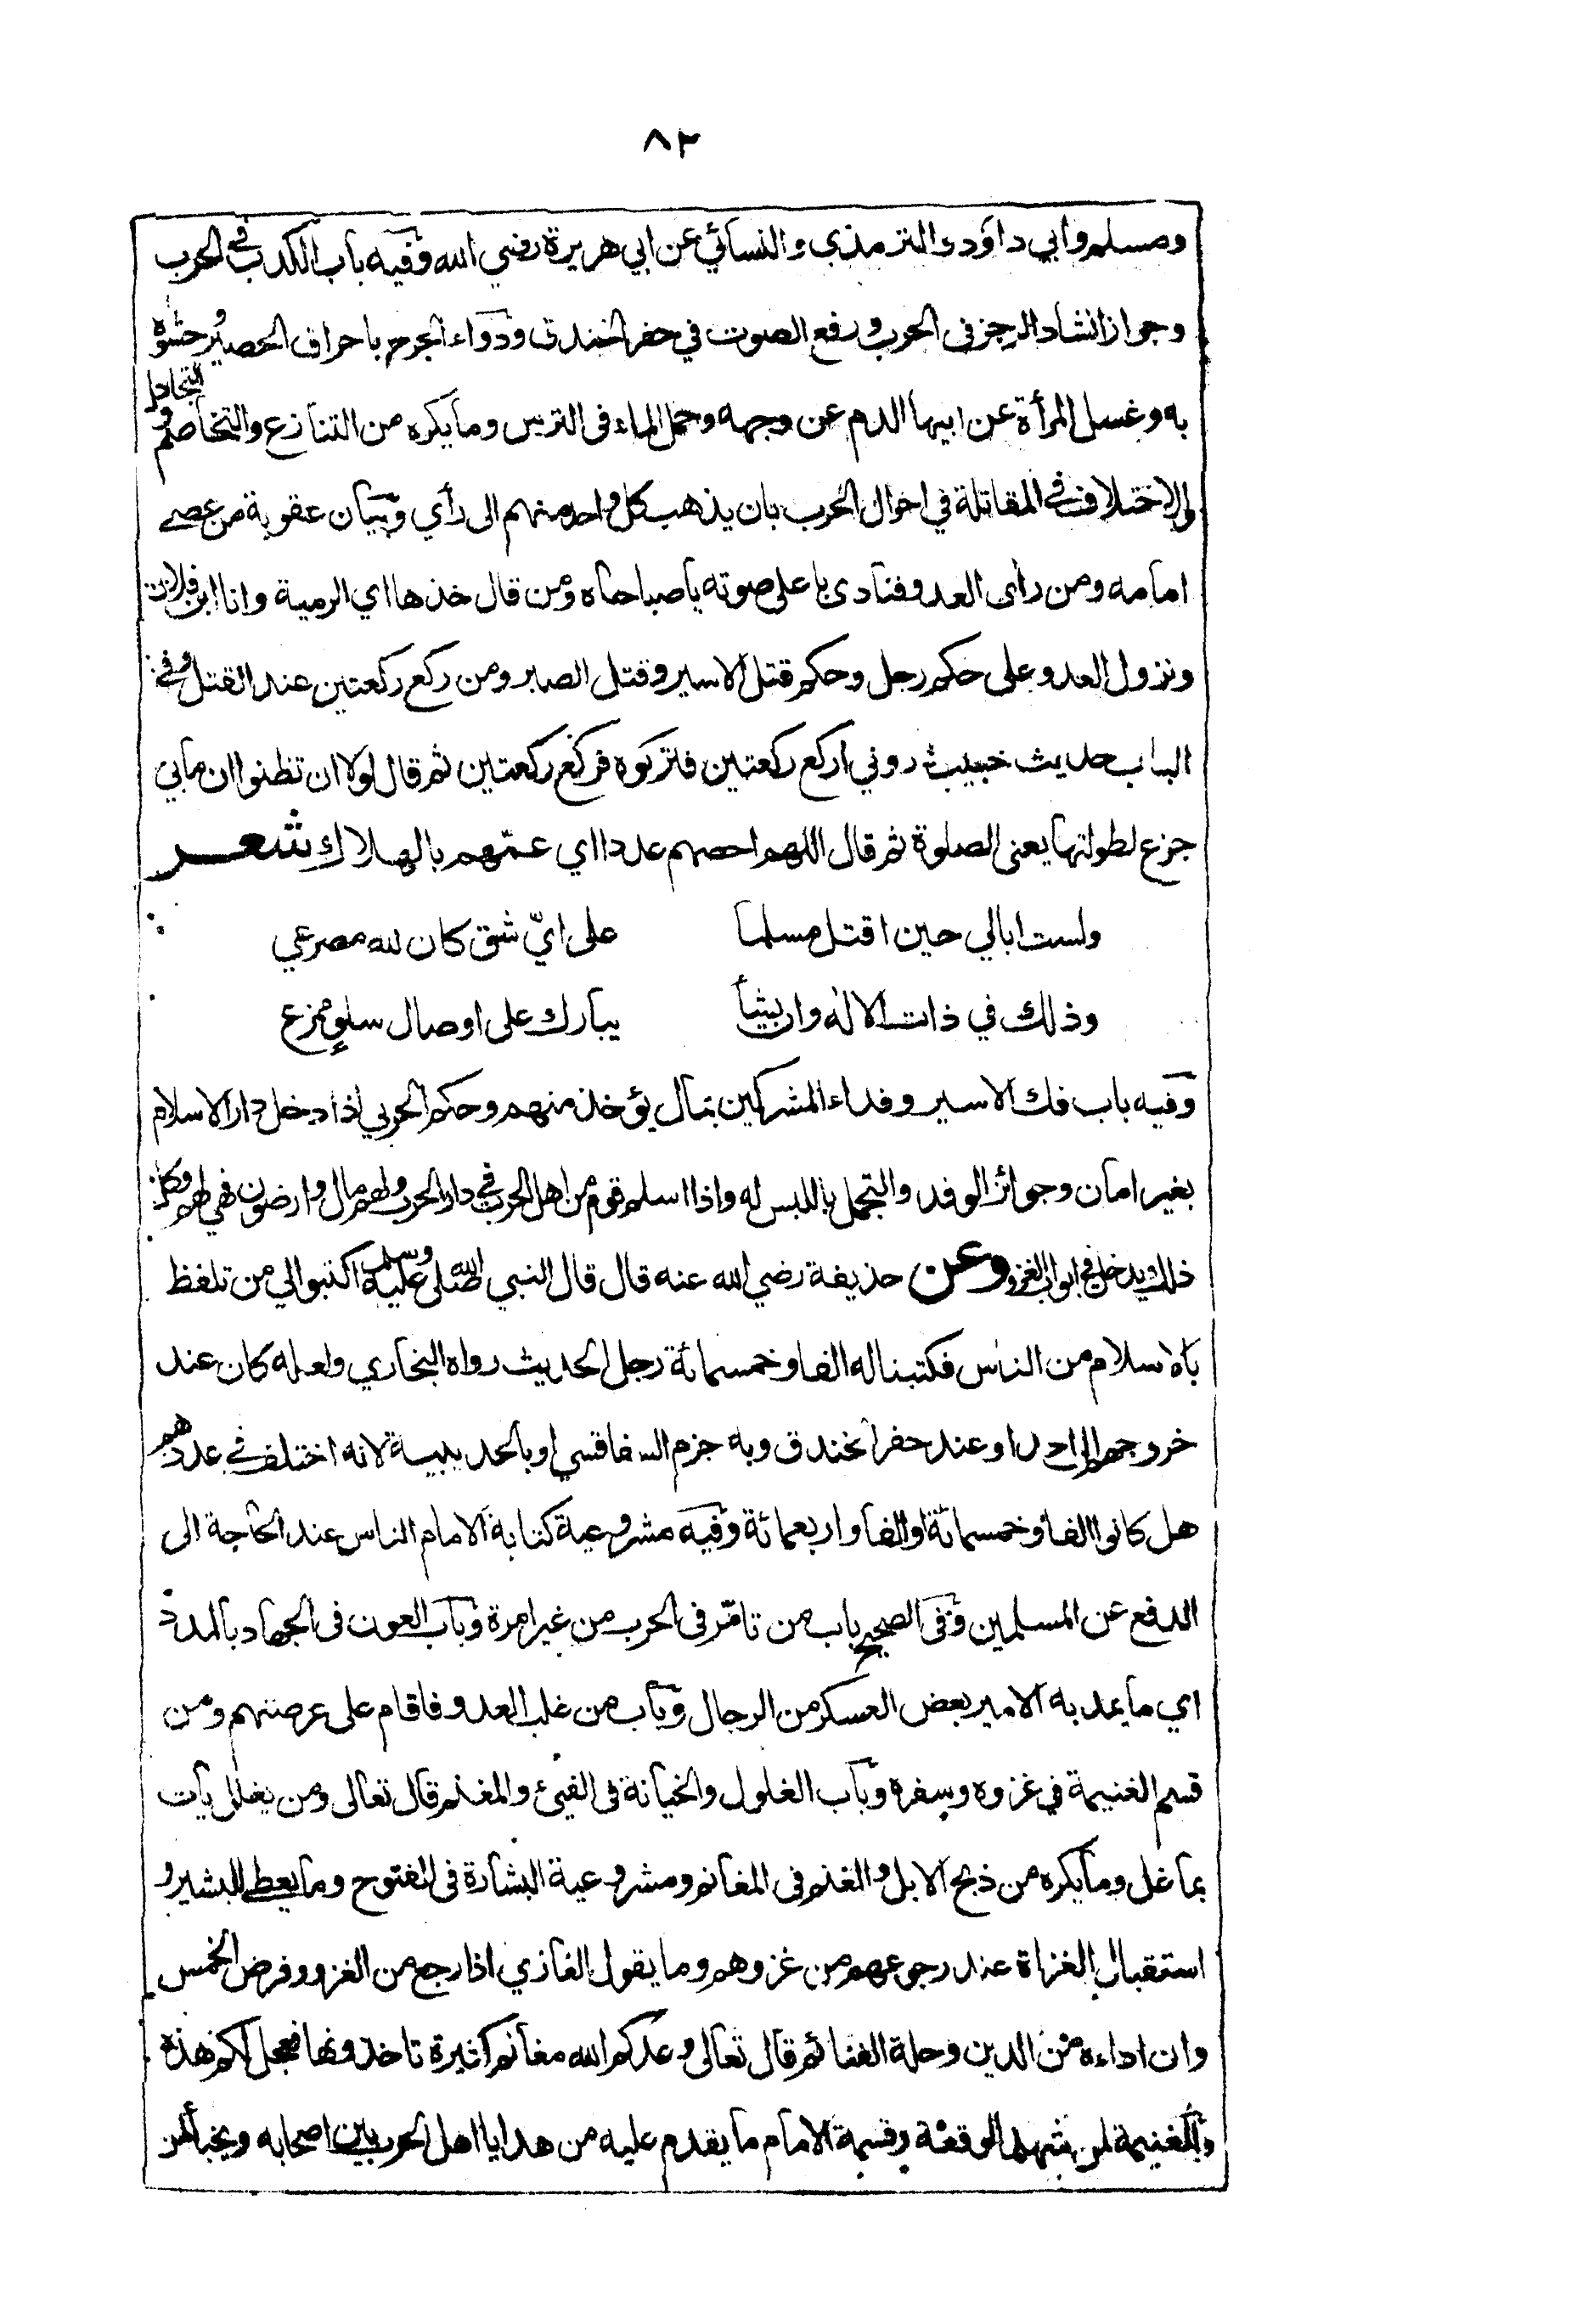 ٨٣
ومسلم وابي داود والترمذي والنسائي عن ابي هريرة رضي الله وفيه باب الكذب في الحرب
وجواز انشاد الرجز في الحرب ورفع الصوت في حفر الخندق ودواء الجرح باحراق الحصير وحشوه
به وغسل المرأة عن ابيها الدم عن وجهه وحمل الماء في الترس وما يكره من التنازع والتخاصم والتجادل
والاختلاف في المقاتلة في احوال الحرب بان يذهب كل واحد منهم الى رأي وبيان عقوبة من عصى
امامه ومن رأى العدو فنادى باعلى صوته يا صباحاه ومن قال خذها اي الرمية وانا ابن فلان
ونزول العدو على حكم رجل وحكم قتل الاسير وقتل الصبر ومن ركع ركعتين عند القتل وفي
الباب حديث خبيب ذروني اركع ركعتين فتركوه فركع ركعتين ثم قال لولا ان تظنوا ان ما بي
جزع لطولتها يعني الصلوة ثم قال اللهم احصهم عددا اي عمّهم بالهلاك شعر
ولست ابالي حين اقتل مسلما على ايّ شق كان لله مصرعي
وذلك في ذات الاله وان يشأ يبارك على اوصال سلو ممزع
وفيه باب فك الاسير وفداء المشركين بمال يؤخذ منهم وحكم الحربي اذا دخل دار الاسلام
بغير امان وجوائز الوفد والتجمل باللبس له واذا اسلم قوم من اهل الحرب في دار الحرب ولهم مال وارضون فهي لهم وكل
ذلك يدخل في ابواب الغزو وعن حذيفة رضي الله عنه قال قال النبي صلى الله عليه وسلم اكتبوا لي من تلفظ
بالاسلام من الناس فكتبنا له الفا وخمسمائة رجل الحديث رواه البخاري ولعله كان عند
خروجهم الى احد او عند حفر الخندق وبه جزم السفاقسي او بالحديبية لانه اختلف في عددهم
هل كانوا الفا وخمسمائة او الفا واربعمائة وفيه مشروعية كتابة الامام الناس عند الحاجة الى
الدفع عن المسلمين وفي الصحيح باب من تامّر في الحرب من غير امرة وباب العون في الجهاد بالمدد
اي ما يمد به الامير بعض العسكر من الرجال وباب من غلب العدو فاقام على عرصتهم ومن
قسم الغنيمة في غزوه وسفره وباب الغلول والخيانة في الفيئ والمغنم قال تعالى ومن يغلل يأت
بما غل وما يكره من ذبح الابل والغنم في المغانم ومشروعية البشارة في الفتوح وما يعطى للبشير و
استقبال الغزاة عند رجوعهم من غزوهم وما يقول الغازي اذا رجع من الغزو وفرض الخمس
وان اداءه من الدين وحلة الغنائم قال تعالى وعدكم الله مغانم كثيرة تاخذونها فعجل لكم هذه
والغنيمة لمن شهد الوقعة وقسمة الامام ما يقدم عليه من هدايا اهل الحرب بين اصحابه ويخبأ لمن